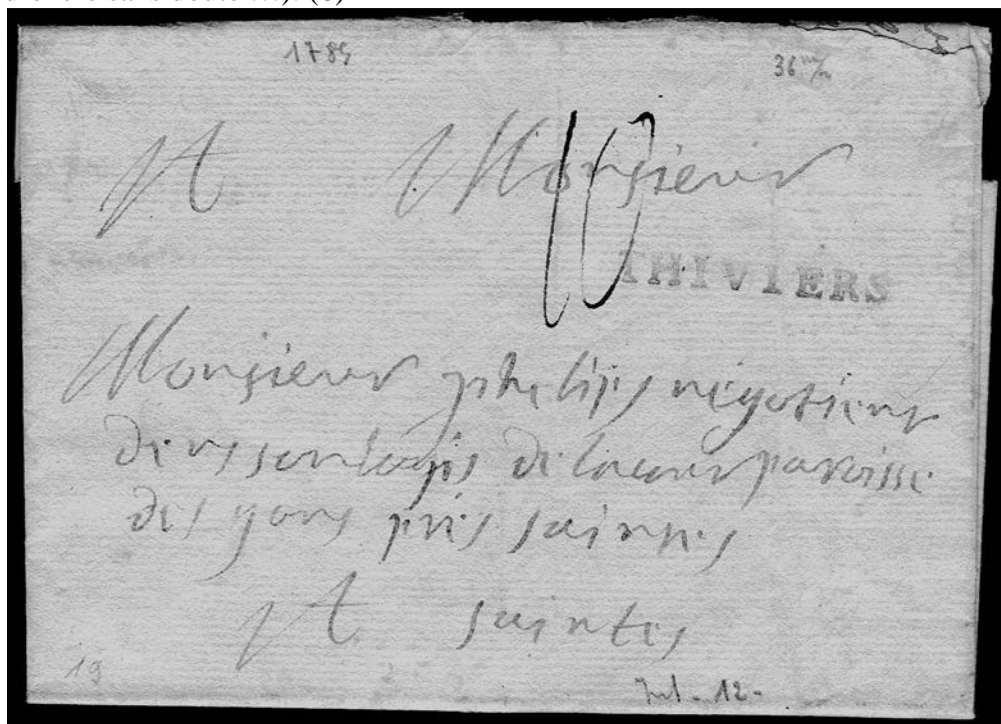 1789
36 m/m
A Monsieur
10
THIVIERS
Monsieur phelips négotient
dens son logis de paroisse
des gons près saintes
A saintes
19
Jul - 12 -